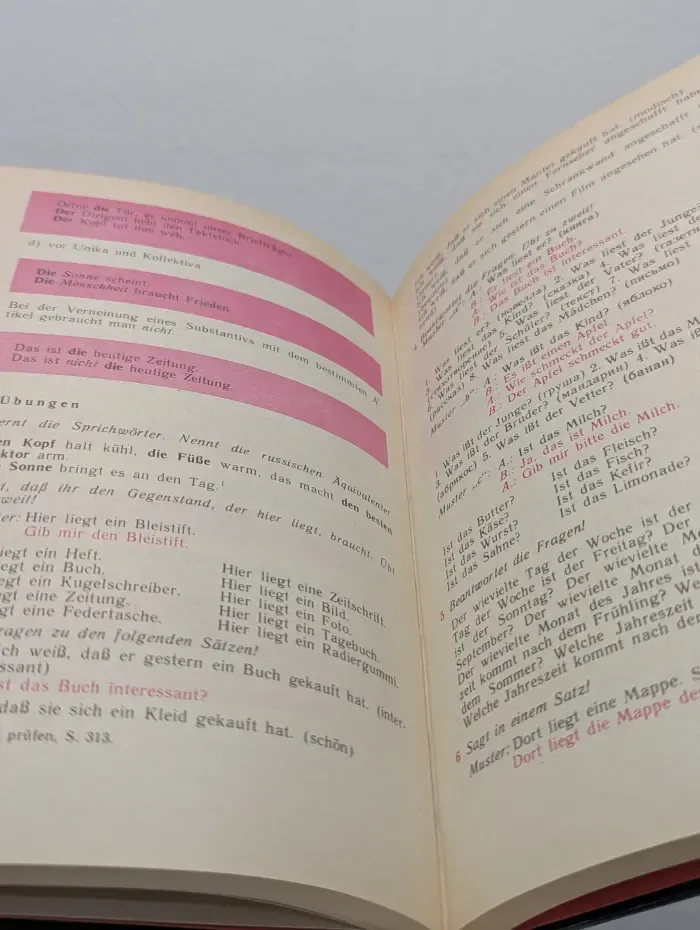 Öffne die Tür, es kommt unser Briefträger.
Der Dirigent hebt den Taktstock.
Der Kopf tut ihm weh.
d) vor Unika und Kollektiva
Die Sonne scheint.
Die Menschheit braucht Frieden.
Bei der Verneinung eines Substantivs mit dem bestimmten A
tikel gebraucht man nicht.
Das ist die heutige Zeitung.
Das ist nicht die heutige Zeitung.
Übungen
ernt die Sprichwörter. Nennt die russischen Äquivalente!
en Kopf halt kühl, die Füße warm, das macht den besten
ktor arm.
Sonne bringt es an den Tag.
t, daß ihr den Gegenstand, der hier liegt, braucht. Übt
zweit!
ter: Hier liegt ein Bleistift.
Gib mir den Bleistift.
iegt ein Heft.
egt ein Buch.
egt ein Kugelschreiber.
gt eine Zeitung.
gt eine Federtasche.
Hier liegt eine Zeitschrift.
Hier liegt ein Bild.
Hier liegt ein Foto.
Hier liegt ein Tagebuch.
Hier liegt ein Radiergummi.
ragen zu den folgenden Sätzen!
ch weiß, daß er gestern ein Buch gekauft hat. (inter-
ssant)
st das Buch interessant?
daß sie sich ein Kleid gekauft hat. (schön)
prüfen, S. 313.
sich einen Mantel gekauft hat. (modisch)
einen Fernseher angeschafft habe
daß er sich eine Schrankwand angeschafft
daß er sich gestern einen Film angesehen hat.
die Fragen! Übt zu zweit!
Was liest er? (книга)
B.: Er liest ein Buch.
A.: Wie ist das Buch?
B.: Das Buch ist interessant.
1. Was liest er? (новелла) 2. Was liest der Junge?
(стихотворение) 3. Was liest das Kind? (сказка) 4. Was liest de
5. Was liest der Vater? (газета)
(рассказ) 6. liest der Schüler? (текст) 7. Was liest
8. Was liest das Mädchen? (письмо)
Muster „b“: A.: Was ißt das Kind? (яблоко)
B.: Es ißt einen Apfel.
A.: Wie schmeckt der Apfel?
B.: Der Apfel schmeckt gut.
1. Was ißt der Junge? (груша) 2. Was ißt das M
3. Was ißt der Bruder? (мандарин) 4. Was iß
(абрикос) 5. Was ißt der Vetter? (банан)
Muster „c“: A.: Ist das Milch?
B.: Ja, das ist Milch.
A.: Gib mir bitte die Milch.
Ist das Butter?
Ist das Käse?
Ist das Wurst?
Ist das Sahne?
Ist das Fleisch?
Ist das Fisch?
Ist das Kefir?
Ist das Limonade?
5 Beantwortet die Fragen!
Der wievielte Tag der Woche ist der
Tag der Woche ist der Freitag? Der
ist der Sonntag? Der wievielte Mo
September? Der wievielte Monat d
Der wievielte Monat des Jahres ist
zeit kommt nach dem Frühling? We
dem Sommer? Welche Jahreszeit
Welche Jahreszeit kommt nach dem
6 Sagt in einem Satz!
Muster: Dort liegt eine Mappe. S
Dort liegt die Mappe de